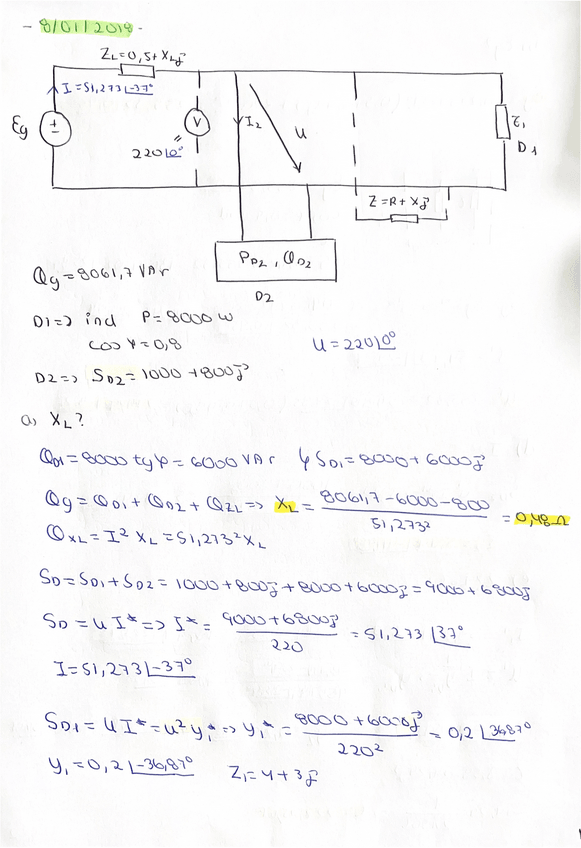 - 8/01/2018 -
ZL=0,5+XLj
I=51,273∠-37°
Eg
V
220∠0°
I2
U
Z1
D1
Z=R+Xj
PD2, QD2
D2
Qg=8061,7 VAr
D1=> ind P=8000 W
cos φ=0,8
U=220∠0°
D2=> SD2=1000+800j
a) XL?
QD1=8000 tgφ=6000 VAr ↳ SD1=8000+6000j
Qg=QD1+QD2+QZL=> XL= 8061,7-6000-800 / 51,273² =0,48Ω
QXL=I² XL=51,273² XL
SD=SD1+SD2=1000+800j+8000+6000j=9000+6800j
SD=UI*=>I*= 9000+6800j / 220 =51,273∠37°
I=51,273∠-37°
SD1=UI*=U² Y1*=>Y1*= 8000+6000j / 220² =0,2∠36,87°
Y1=0,2∠-36,87° Z1=4+3j